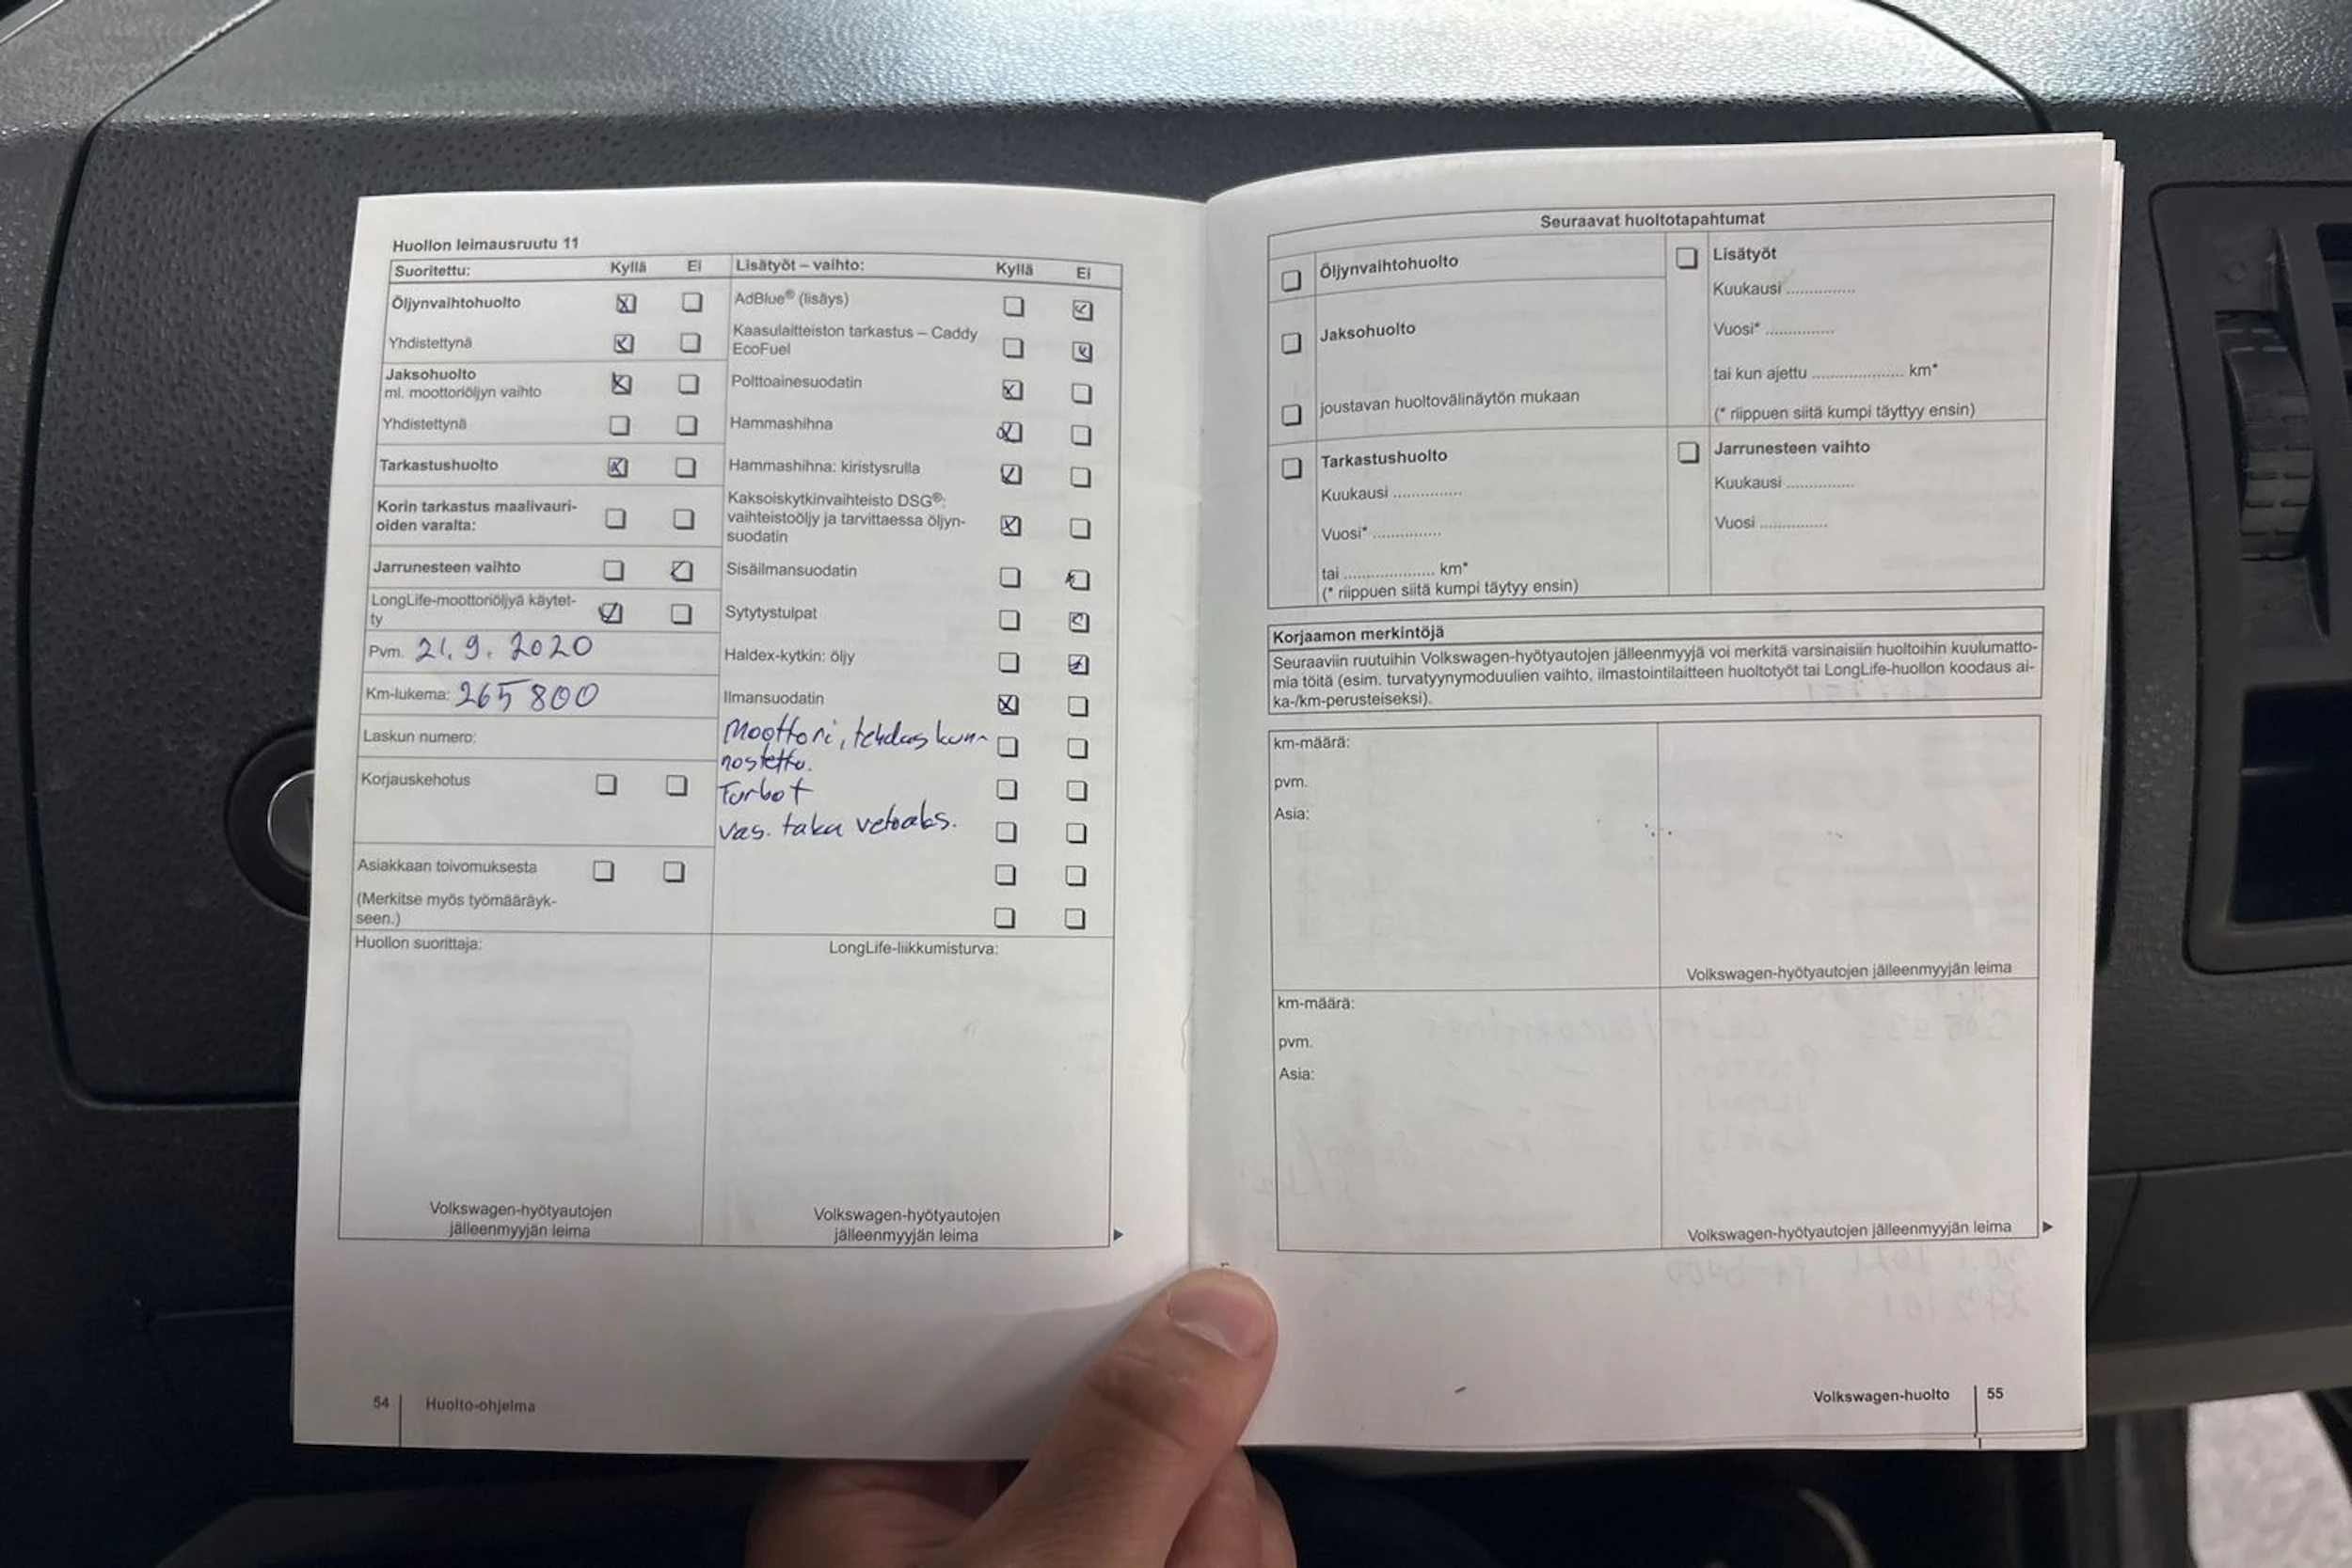 Huollon leimausruutu 11
Suoritettu: Kyllä Ei
Öljynvaihtohuolto
Yhdistettynä
Jaksohuolto
ml. moottoriöljyn vaihto
Yhdistettynä
Tarkastushuolto
Korin tarkastus maalivauri-
oiden varalta:
Jarrunesteen vaihto
LongLife-moottoriöljyä käytet-
ty
Pvm. 21.9.2020
Km-lukema: 265 800
Laskun numero:
Korjauskehotus
Asiakkaan toivomuksesta
(Merkitse myös työmääräyk-
seen.)
Lisätyöt – vaihto: Kyllä Ei
AdBlue® (lisäys)
Kaasulaitteiston tarkastus – Caddy
EcoFuel
Polttoainesuodatin
Hammashihna
Hammashihna: kiristysrulla
Kaksoiskytkinvaihteisto DSG®:
vaihteistoöljy ja tarvittaessa öljyn-
suodatin
Sisäilmansuodatin
Sytytystulpat
Haldex-kytkin: öljy
Ilmansuodatin
Moottori, tehdas kun-
nostettu.
Turbot
Vas. taka vetoaks.
Huollon suorittaja:
Volkswagen-hyötyautojen
jälleenmyyjän leima
LongLife-liikkumisturva:
Volkswagen-hyötyautojen
jälleenmyyjän leima
54 Huolto-ohjelma
Seuraavat huoltotapahtumat
Öljynvaihtohuolto
Jaksohuolto
joustavan huoltovälinäytön mukaan
Lisätyöt
Kuukausi ...............
Vuosi* ...............
tai kun ajettu .................... km*
(* riippuen siitä kumpi täyttyy ensin)
Tarkastushuolto
Kuukausi ...............
Vuosi* ...............
tai .................... km*
(* riippuen siitä kumpi täytyy ensin)
Jarrunesteen vaihto
Kuukausi ...............
Vuosi ...............
Korjaamon merkintöjä
Seuraaviin ruutuihin Volkswagen-hyötyautojen jälleenmyyjä voi merkitä varsinaisiin huoltoihin kuulumatto-
mia töitä (esim. turvatyynymoduulien vaihto, ilmastointilaitteen huoltotyöt tai LongLife-huollon koodaus ai-
ka-/km-perusteiseksi).
km-määrä:
pvm.
Asia:
Volkswagen-hyötyautojen jälleenmyyjän leima
km-määrä:
pvm.
Asia:
Volkswagen-hyötyautojen jälleenmyyjän leima
Volkswagen-huolto 55